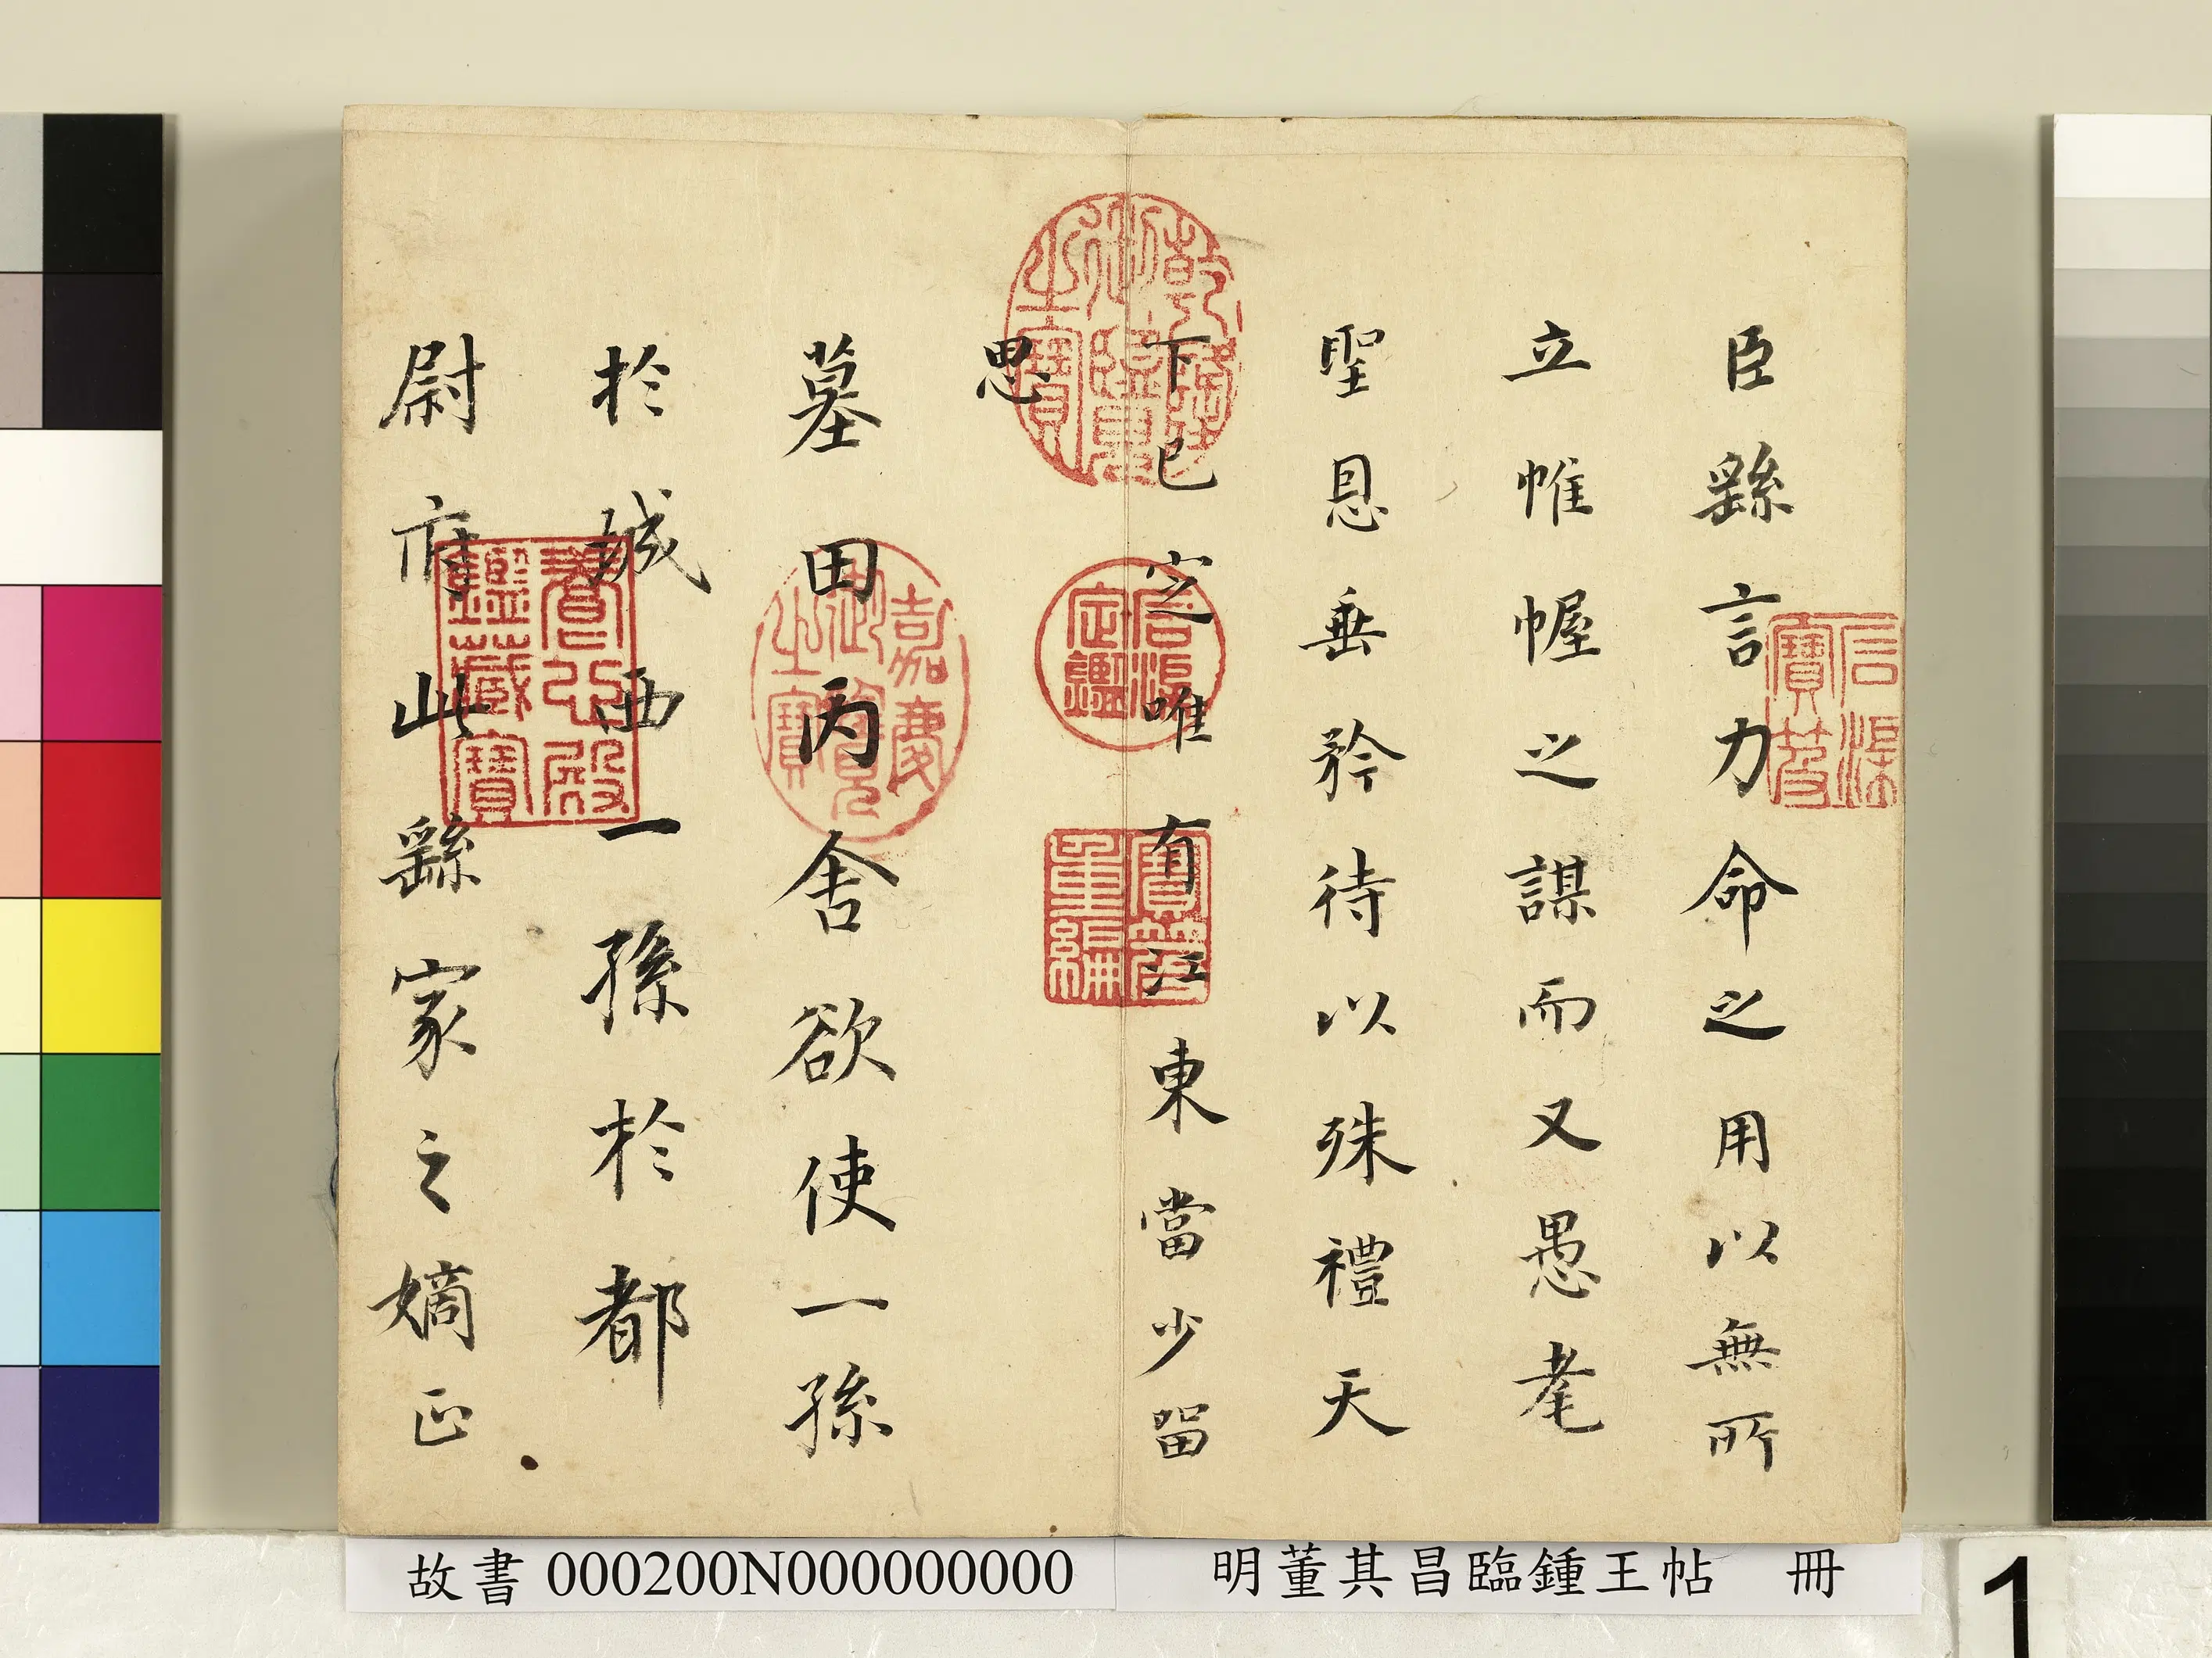 臣繇言力命之用以無所
立帷幄之謀而又愚耄
聖恩垂矜待以殊禮天
下已定唯有江東當少留
思
墓田丙舍欲使一孫
於城西一孫於都
尉府此繇家之嫡正
信深寶笈
乾隆御覽之寶
石渠定鑑
寶笈重編
嘉慶御覽之寶
養心殿鑑藏寶
故書 000200N000000000
明董其昌臨鍾王帖 冊
1